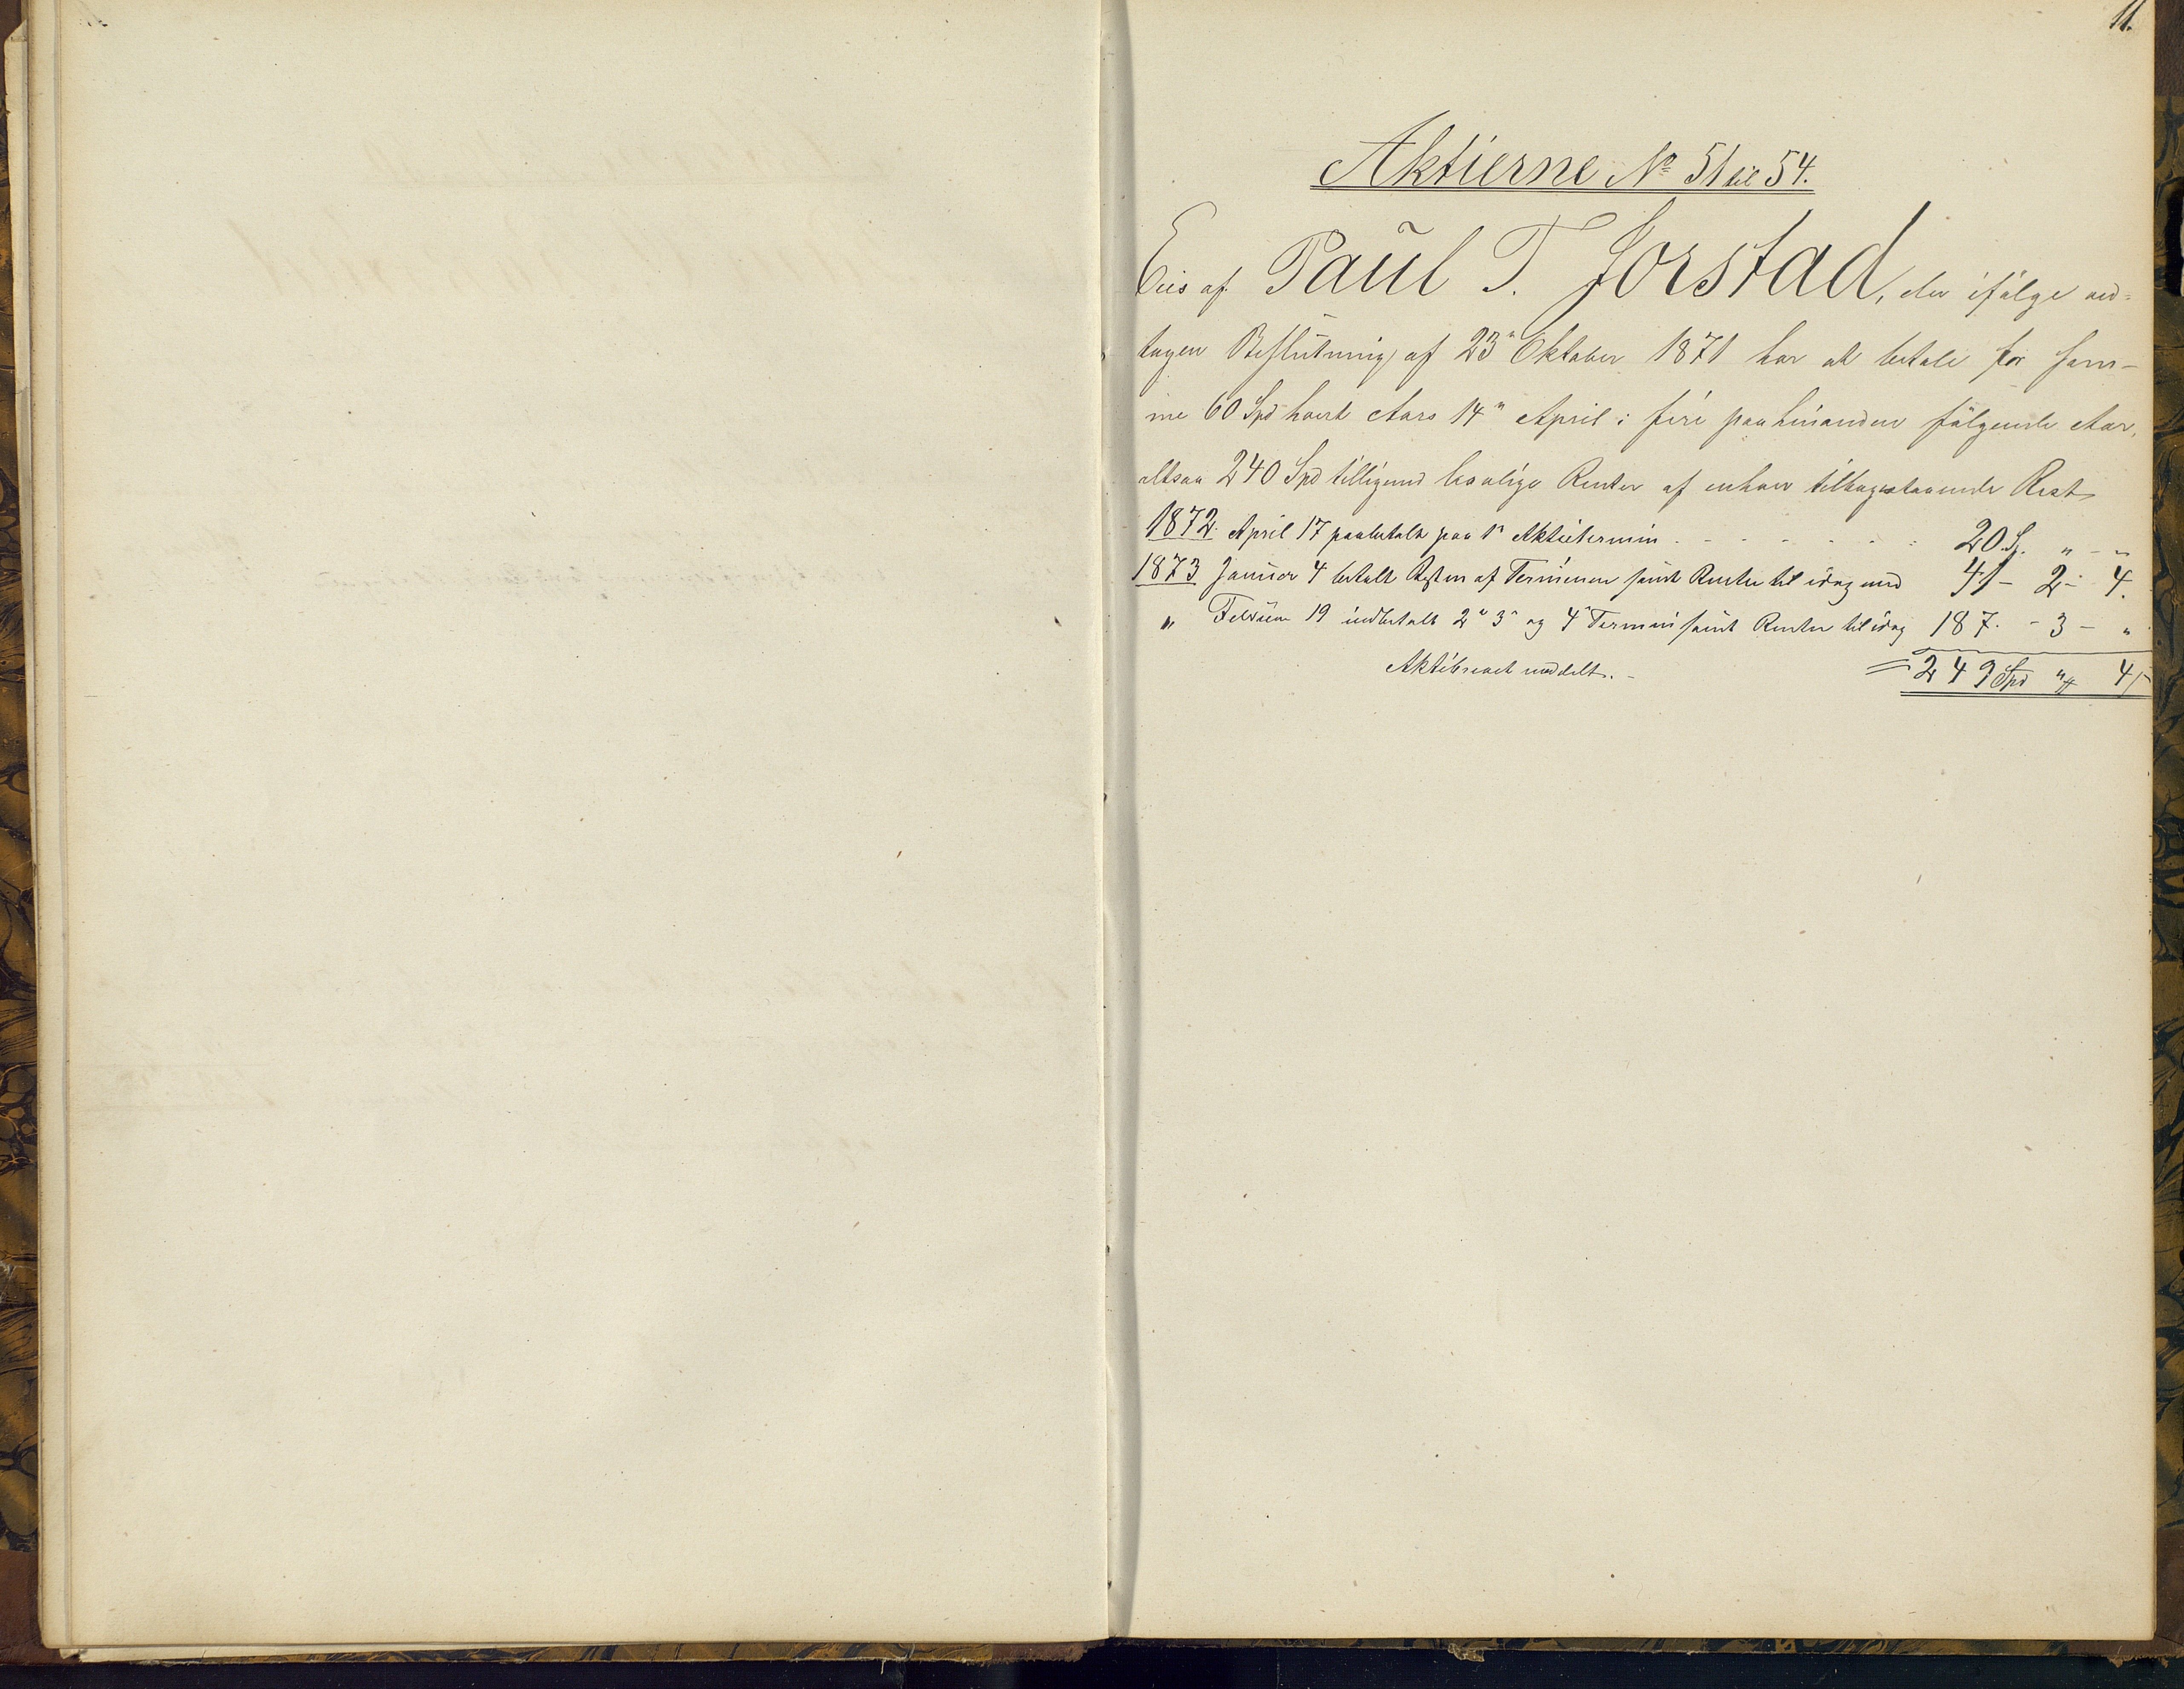 11.
Aktierne No 51 til 54.
Eies af Paul T. Jorstad, der ifølge ved-
tagen Beslutning af 23" Oktober 1871 har at betale for sam-
me 60 Spd hvert Aars 14" April i fire paahinanden følgende Aar,
altsaa 240 Spd tilligemed lovlige Renter af enhver tilbagestaaende Rest
1872. April 17 paabetalt paa 1" Aktietermin . - - - - - - 20 S. " - "
1873 Januar 4 betalt Resten af Terminen samt Renter til idag med 41 - 2 - 4.
" Februar 19 indbetalt 2" 3" og 4" Termin samt Renter til idag 187. - 3 - "
Aktiebrevet meddelt. - = 249 Spd " 4